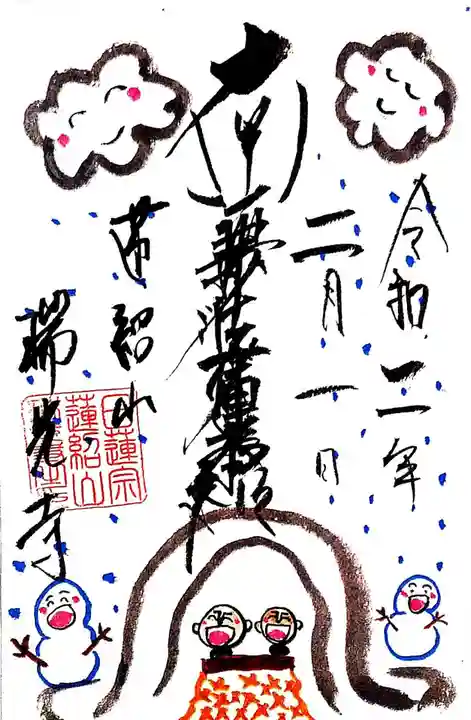 令和二年
二月一日
南無妙法蓮華経
蓮紹山
瑞光寺
日蓮宗
蓮紹山
瑞光寺